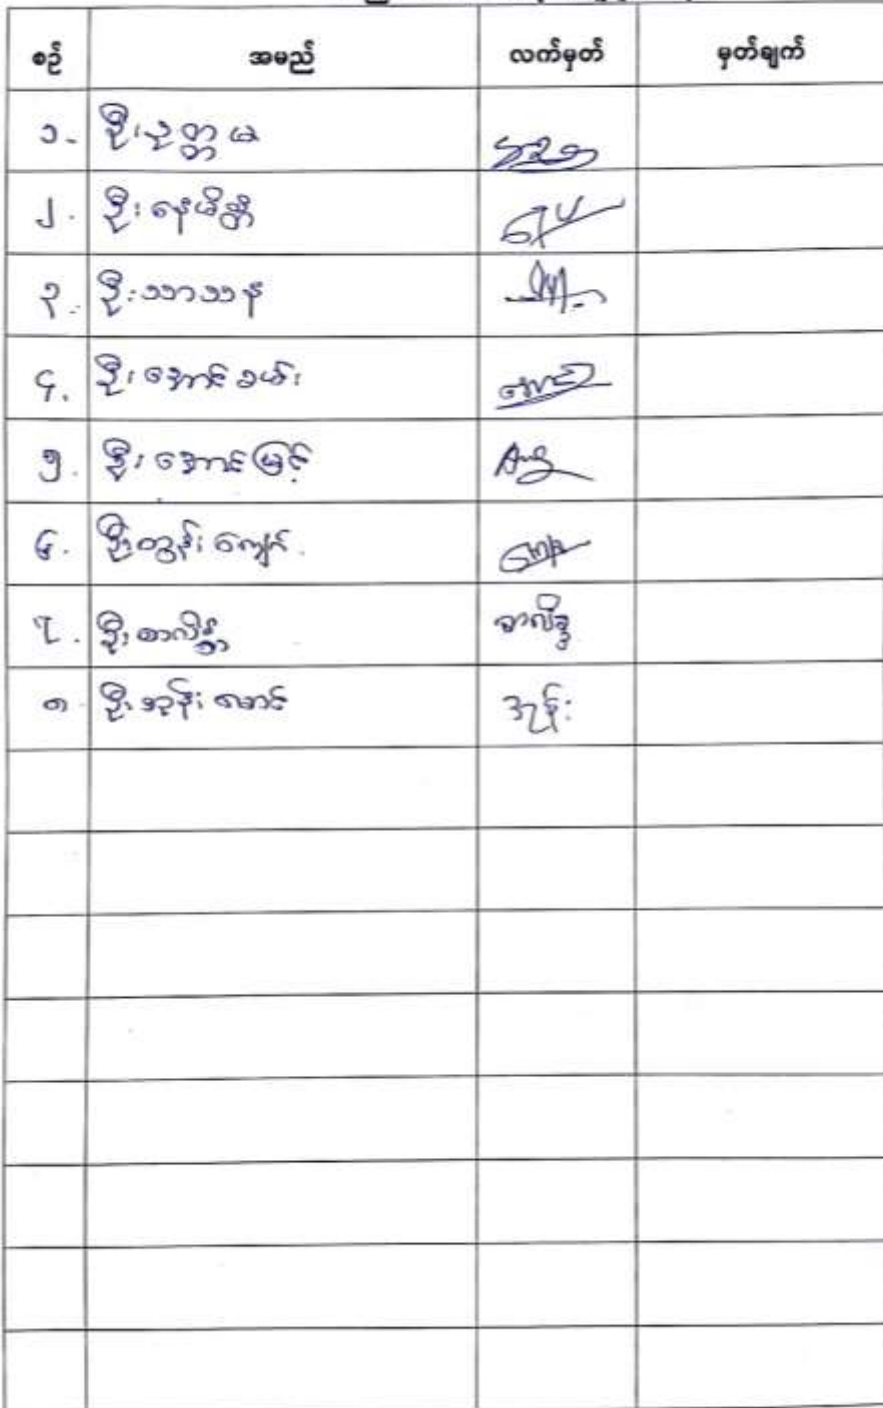 စဉ် အမည် လက်မှတ် မှတ်ချက်
၁- ဦးဥတ္တမ
၂. ဦးနေမိန္ဒ
၃. ဦးသာသန
၄. ဦးအောင်ခမ်း အောင်
၅. ဦးအောင်မြင့် Aung
၆. ဦးထွန်းကျော်.
၇. ဦးစာလိန္ဒ စာလိန္ဒ
၈ ဦးအုန်းမောင် အုန်း